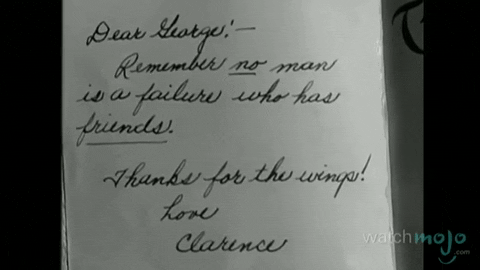 Dear George:—
Remember no man
is a failure who has
friends.
Thanks for the wings!
Love
Clarence
watchmojo.com